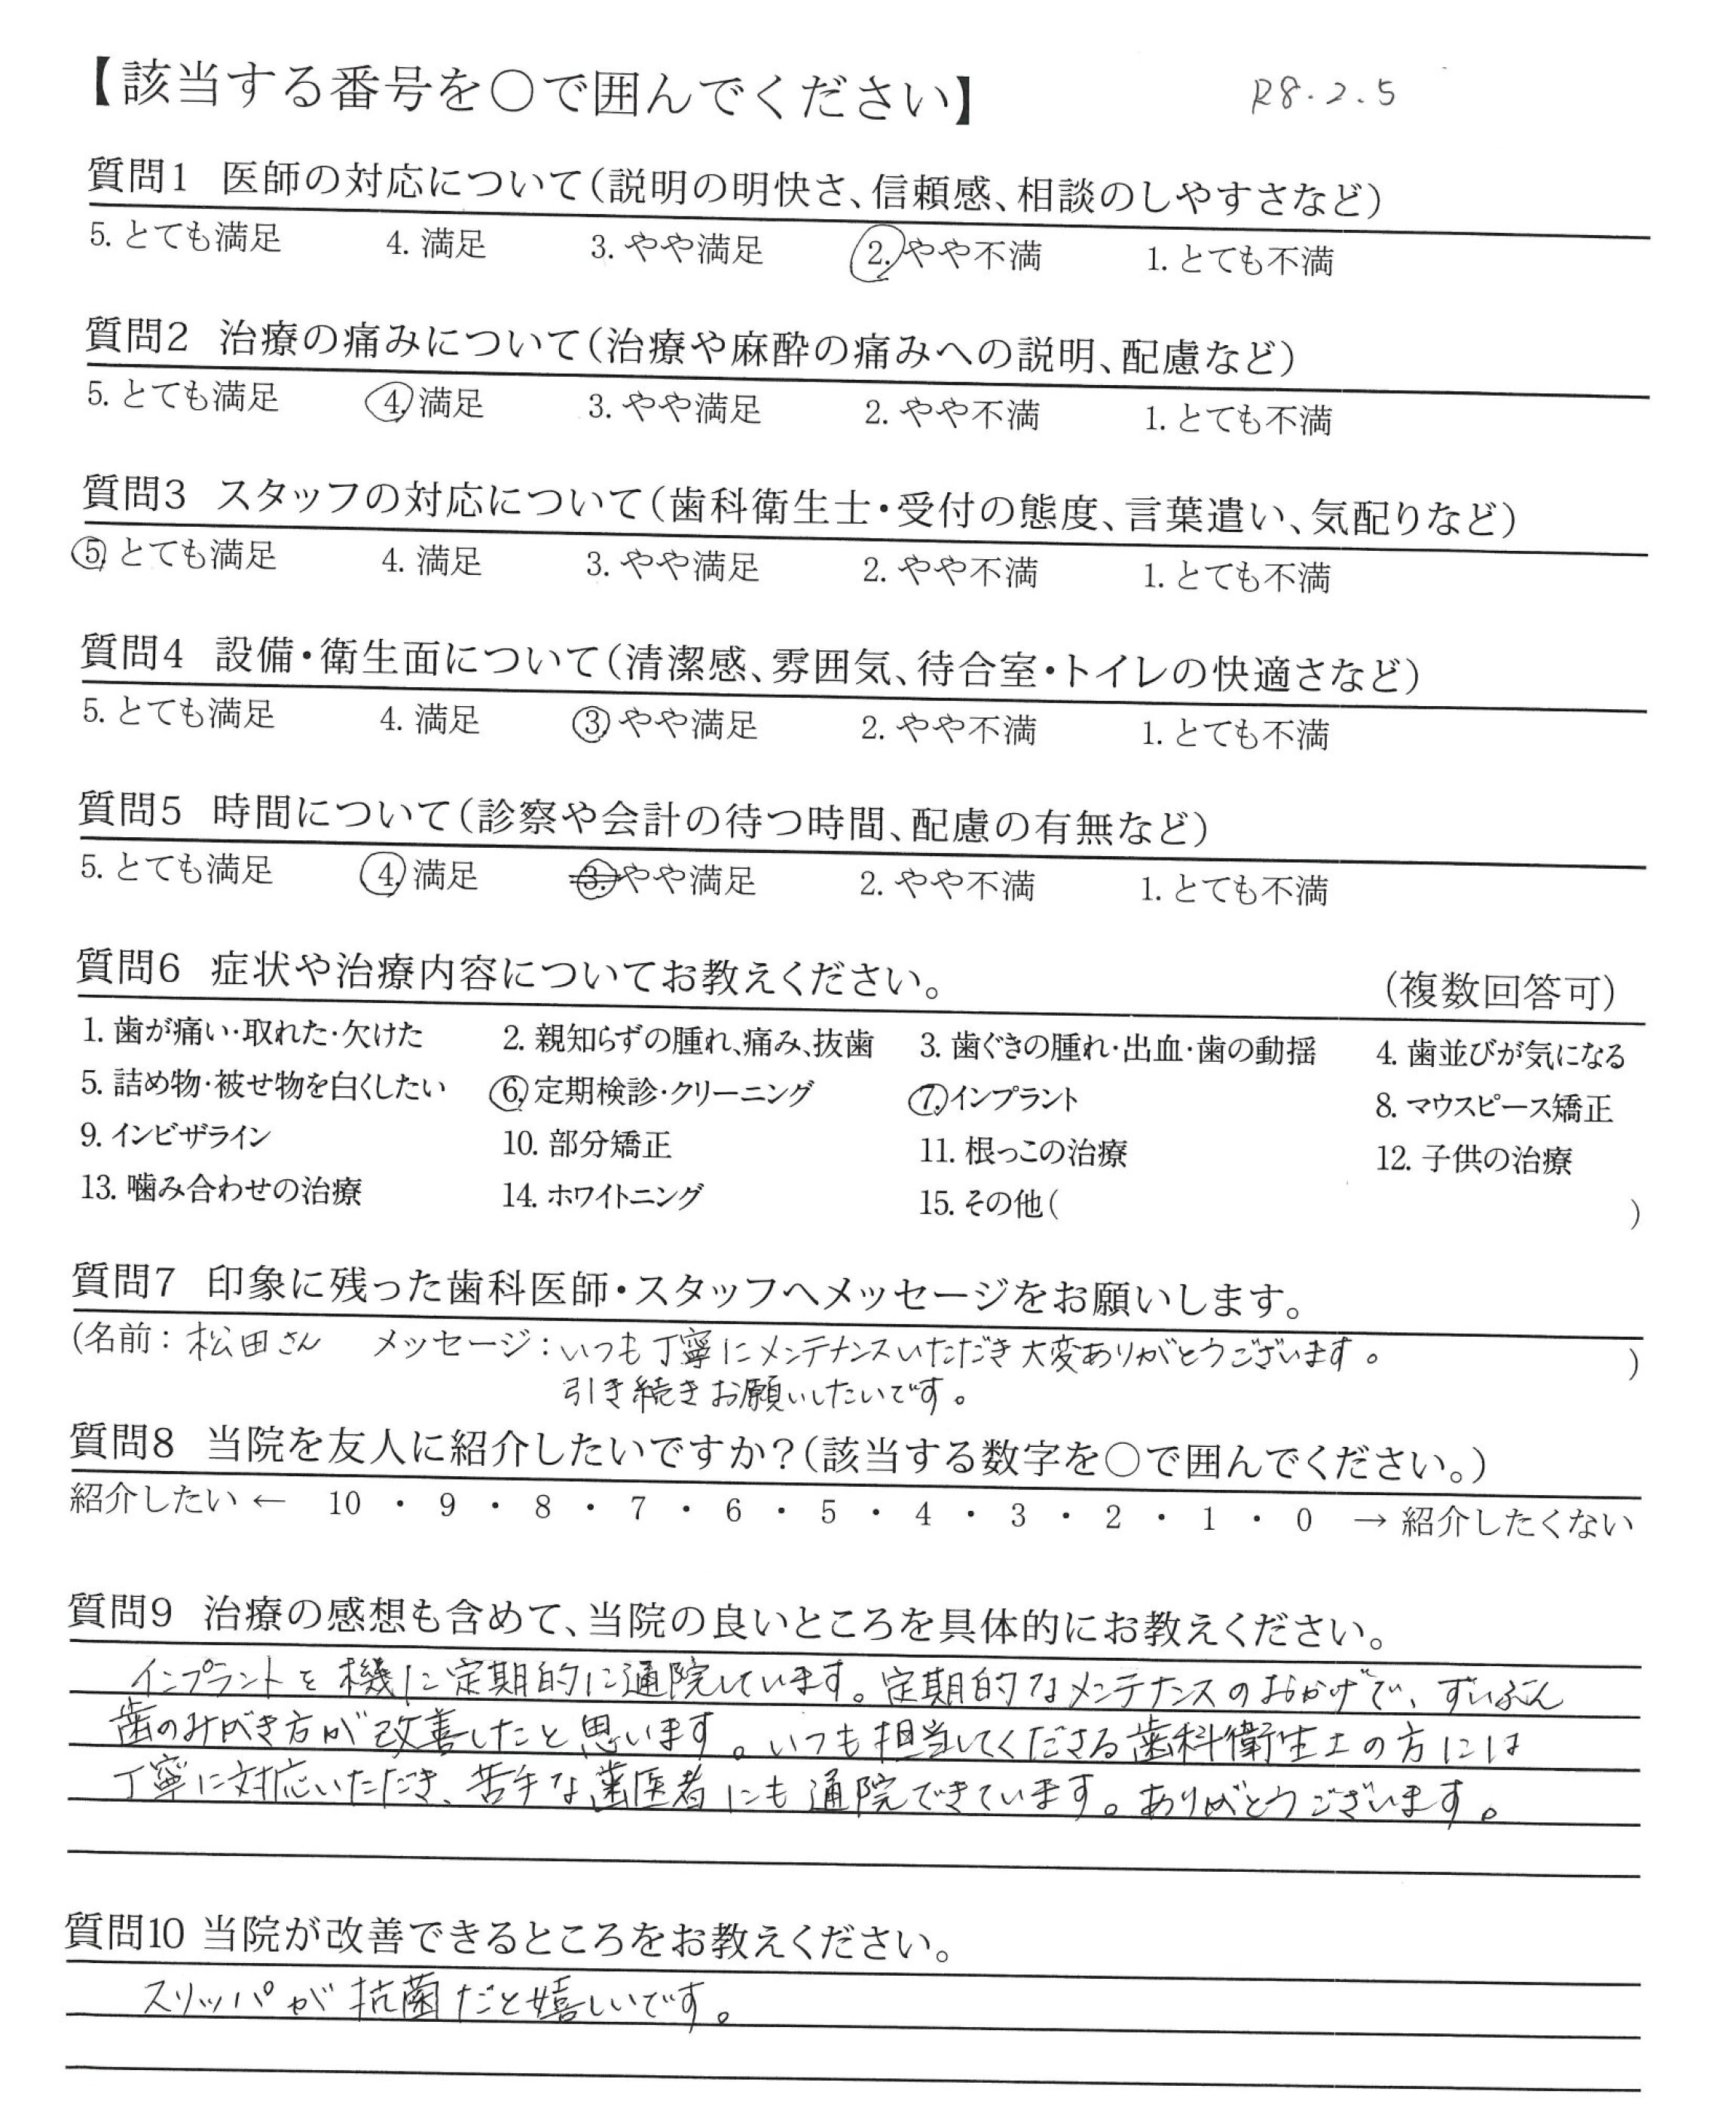 【該当する番号を○で囲んでください】 R8.2.5
質問1 医師の対応について(説明の明快さ、信頼感、相談のしやすさなど)
5. とても満足 4. 満足 3. やや満足 2. やや不満 1. とても不満
質問2 治療の痛みについて(治療や麻酔の痛みへの説明、配慮など)
5. とても満足 4. 満足 3. やや満足 2. やや不満 1. とても不満
質問3 スタッフの対応について(歯科衛生士・受付の態度、言葉遣い、気配りなど)
5. とても満足 4. 満足 3. やや満足 2. やや不満 1. とても不満
質問4 設備・衛生面について(清潔感、雰囲気、待合室・トイレの快適さなど)
5. とても満足 4. 満足 3. やや満足 2. やや不満 1. とても不満
質問5 時間について(診察や会計の待つ時間、配慮の有無など)
5. とても満足 4. 満足 3. やや満足 2. やや不満 1. とても不満
質問6 症状や治療内容についてお教えください。 (複数回答可)
1. 歯が痛い・取れた・欠けた 2. 親知らずの腫れ、痛み、抜歯 3. 歯ぐきの腫れ・出血・歯の動揺 4. 歯並びが気になる
5. 詰め物・被せ物を白くしたい 6. 定期検診・クリーニング 7. インプラント 8. マウスピース矯正
9. インビザライン 10. 部分矯正 11. 根っこの治療 12. 子供の治療
13. 噛み合わせの治療 14. ホワイトニング 15. その他( )
質問7 印象に残った歯科医師・スタッフへメッセージをお願いします。
(名前: 松田さん メッセージ: いつも丁寧にメンテナンスいただき大変ありがとうございます。 )
引き続きお願いしたいです。
質問8 当院を友人に紹介したいですか?(該当する数字を○で囲んでください。)
紹介したい ← 10 ・ 9 ・ 8 ・ 7 ・ 6 ・ 5 ・ 4 ・ 3 ・ 2 ・ 1 ・ 0 → 紹介したくない
質問9 治療の感想も含めて、当院の良いところを具体的にお教えください。
インプラントを機に定期的に通院しています。定期的なメンテナンスのおかげで、ずいぶん
歯のみがき方が改善したと思います。いつも担当してくださる歯科衛生士の方には
丁寧に対応いただき、苦手な歯医者にも通院できています。ありがとうございます。
質問10 当院が改善できるところをお教えください。
スリッパが抗菌だと嬉しいです。